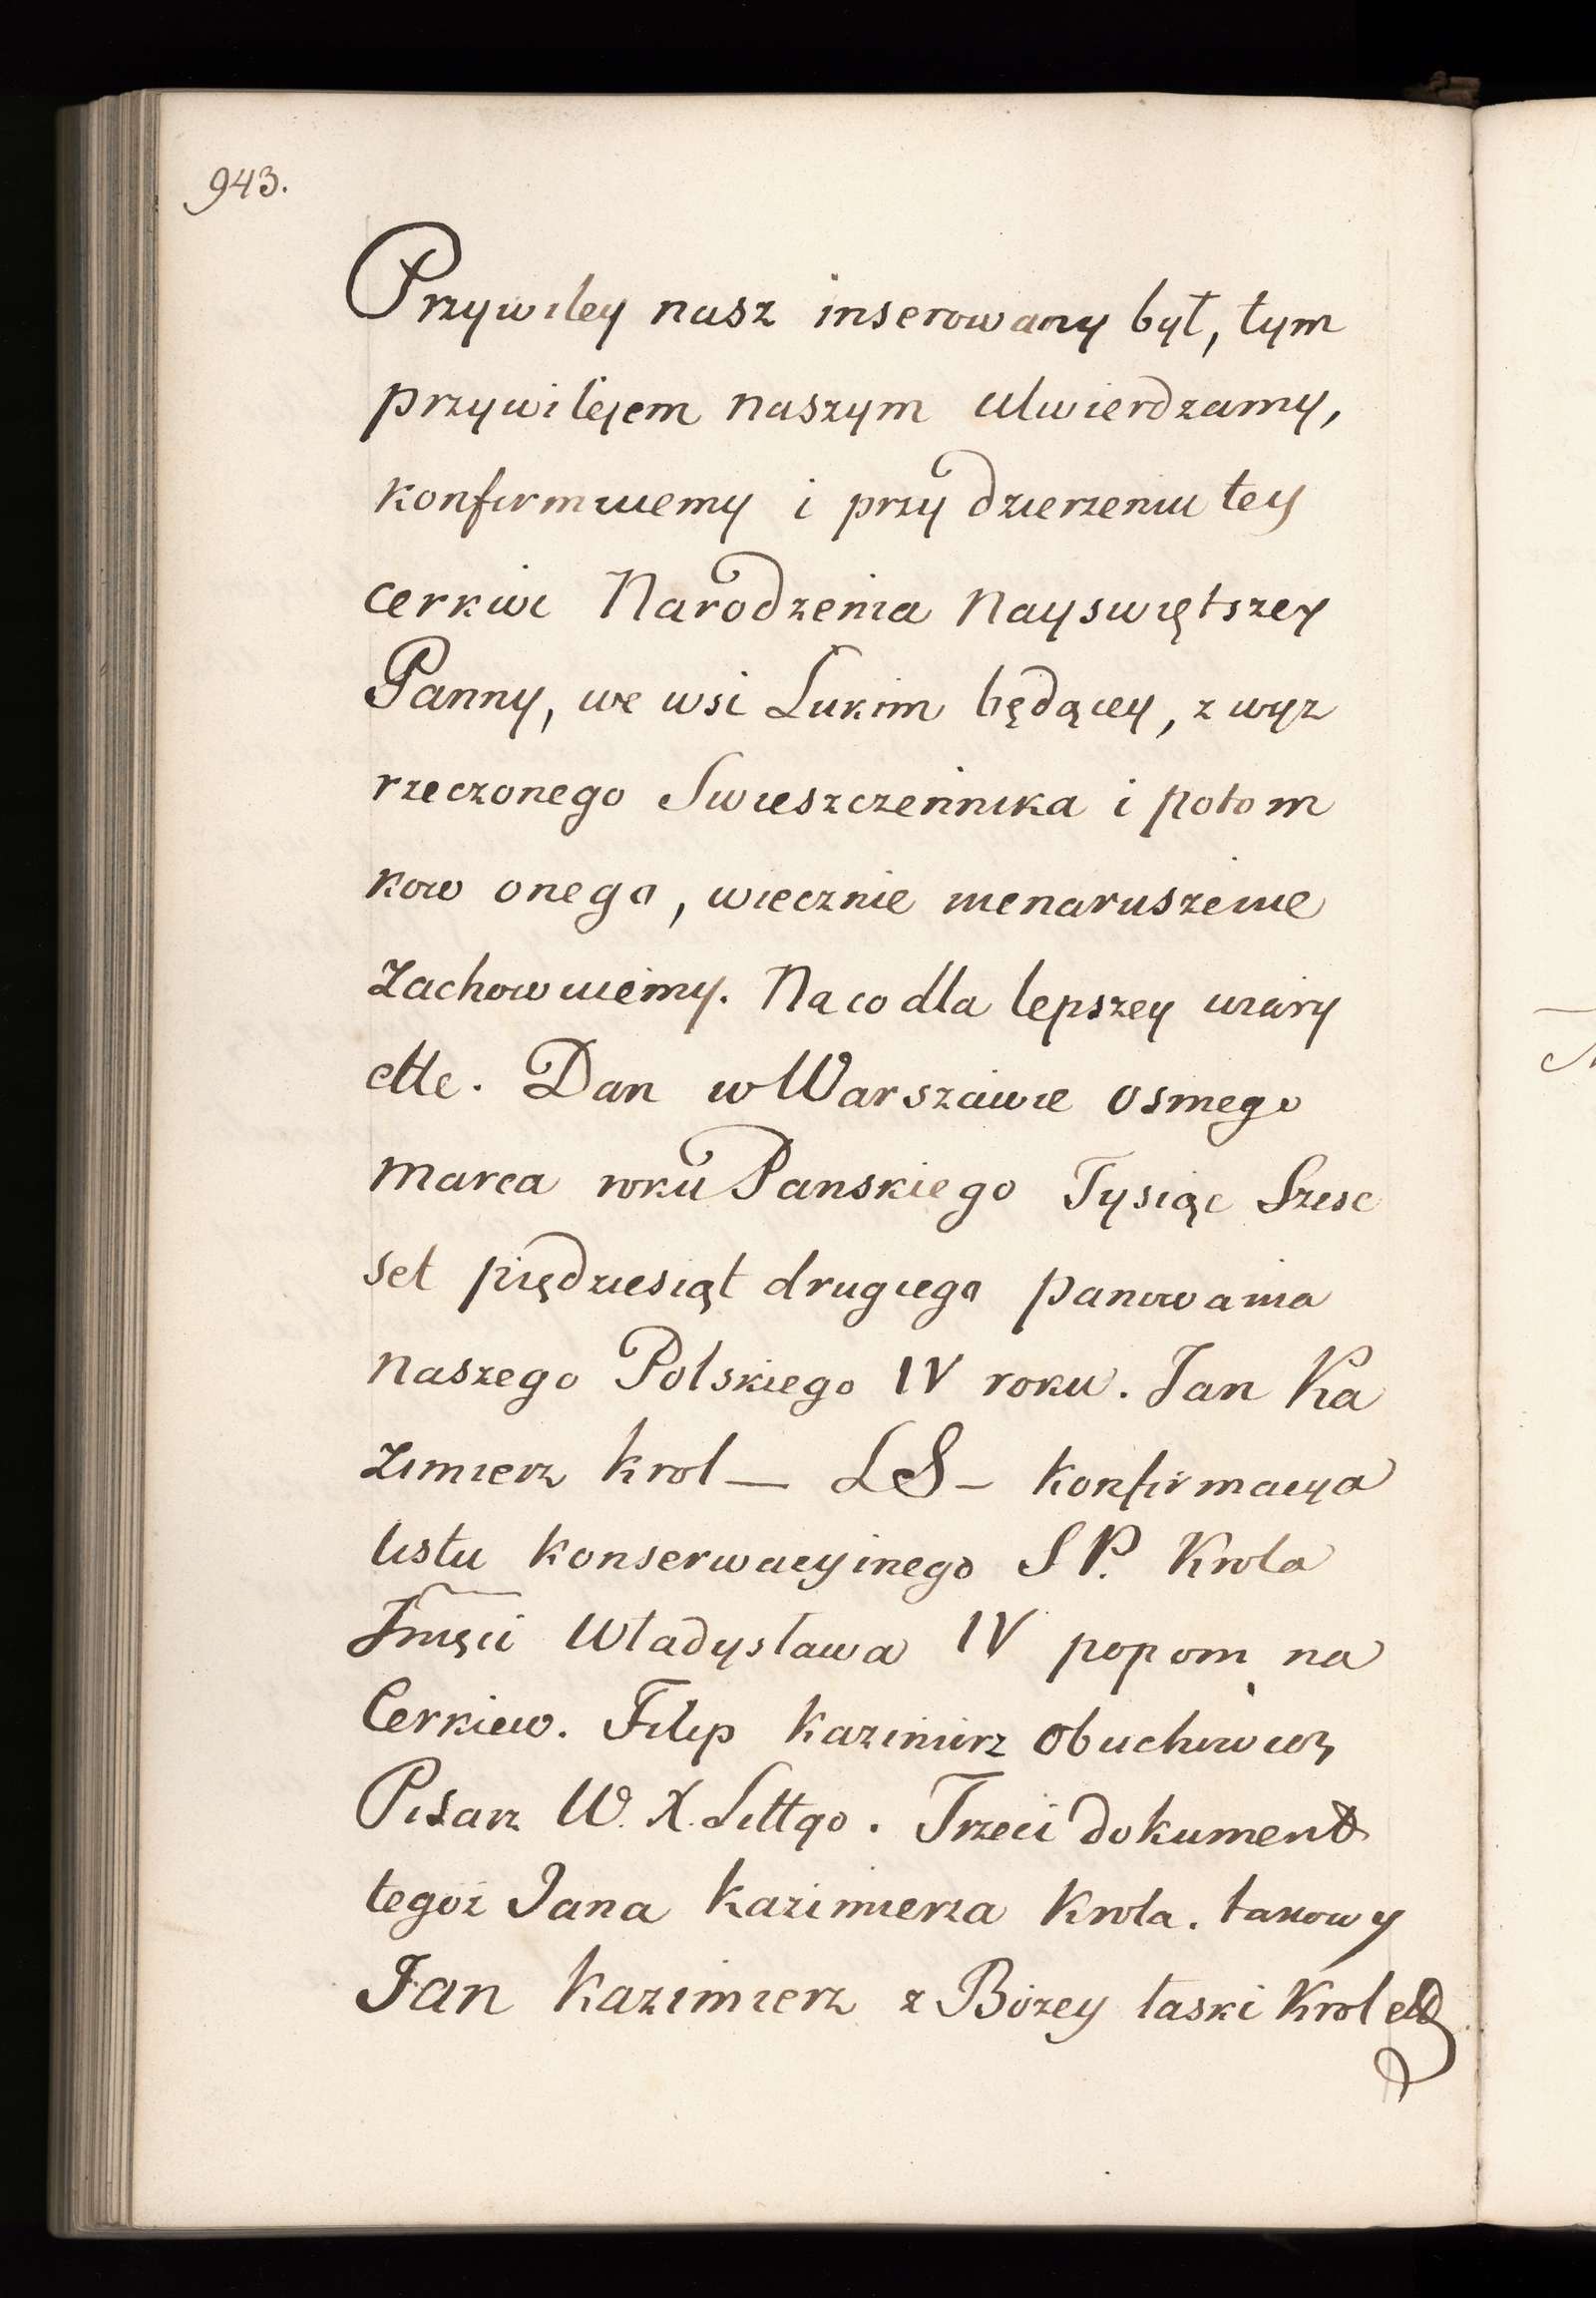 943.
Przywiley nasz inserowany był, tym
przywilejem naszym utwierdzamy,
konfirmuiemy i przy dzierzeniu tey
cerkwi Narodzenia Nayswiętszey
Panny, we wsi Lukim będącey, z wyz
rzeczonego Swieszczennika i potom
kow onego, wiecznie nienaruszenie
zachowuiemy. Na co dla lepszey wiary
ettc. Dan w Warszawie osmego
marca roku Panskiego Tysiąc Szesc
set piędziesiąt drugiego panowania
naszego Polskiego IV roku. Jan Ka
zimierz krol — LS – Konfirmacya
listu konserwacyinego SP. Krola
Jmęci Władysława IV popom na
Cerkiew. Filip Kazimirz Obuchowicz
Pisarz W. X. Littgo. Trzeci dokument
tegoż Jana Kazimierza Krola. takowy
Jan Kazimierz z Bozey łaski Krol